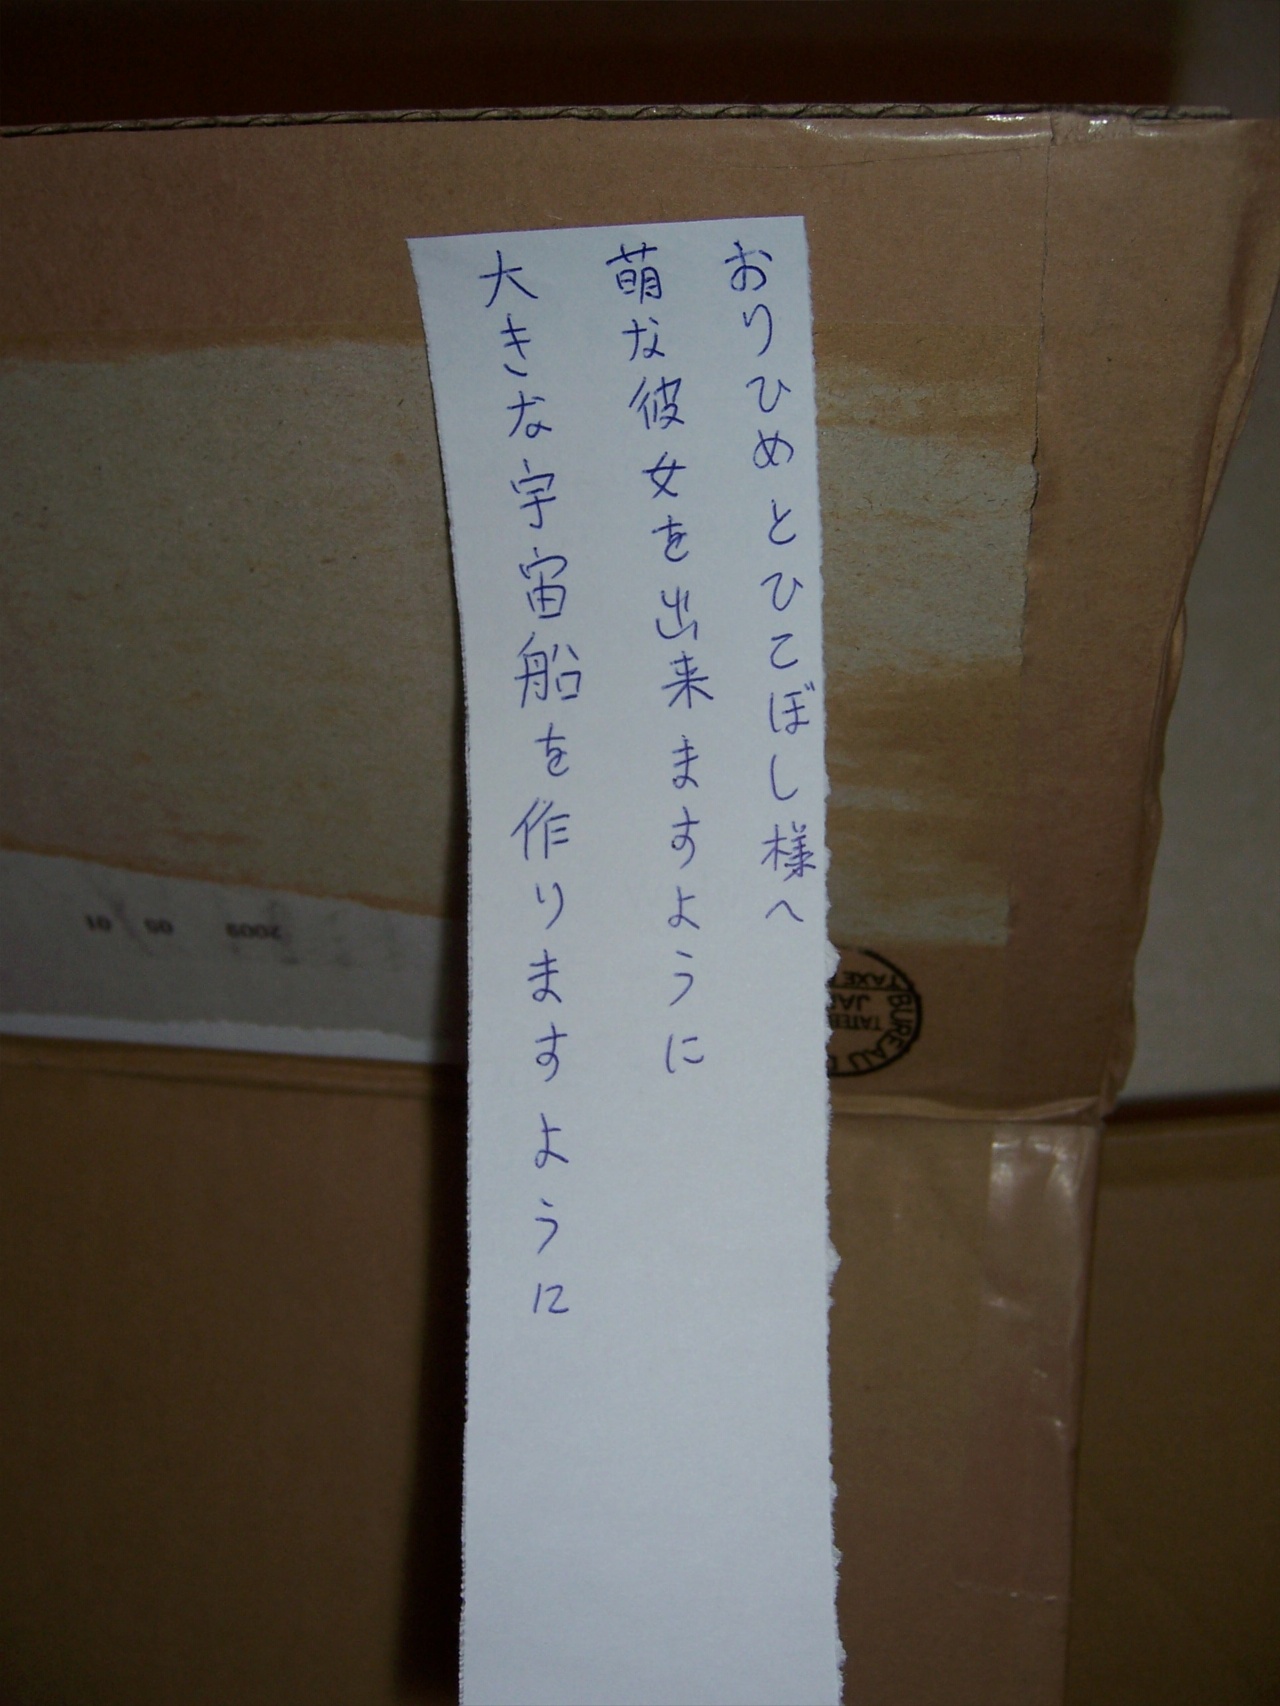 おりひめとひこぼし様へ
萌な彼女を出来ますように
大きな宇宙船を作りますように
2009 09 01
BUREAU
TAXE
JAP
TATEB